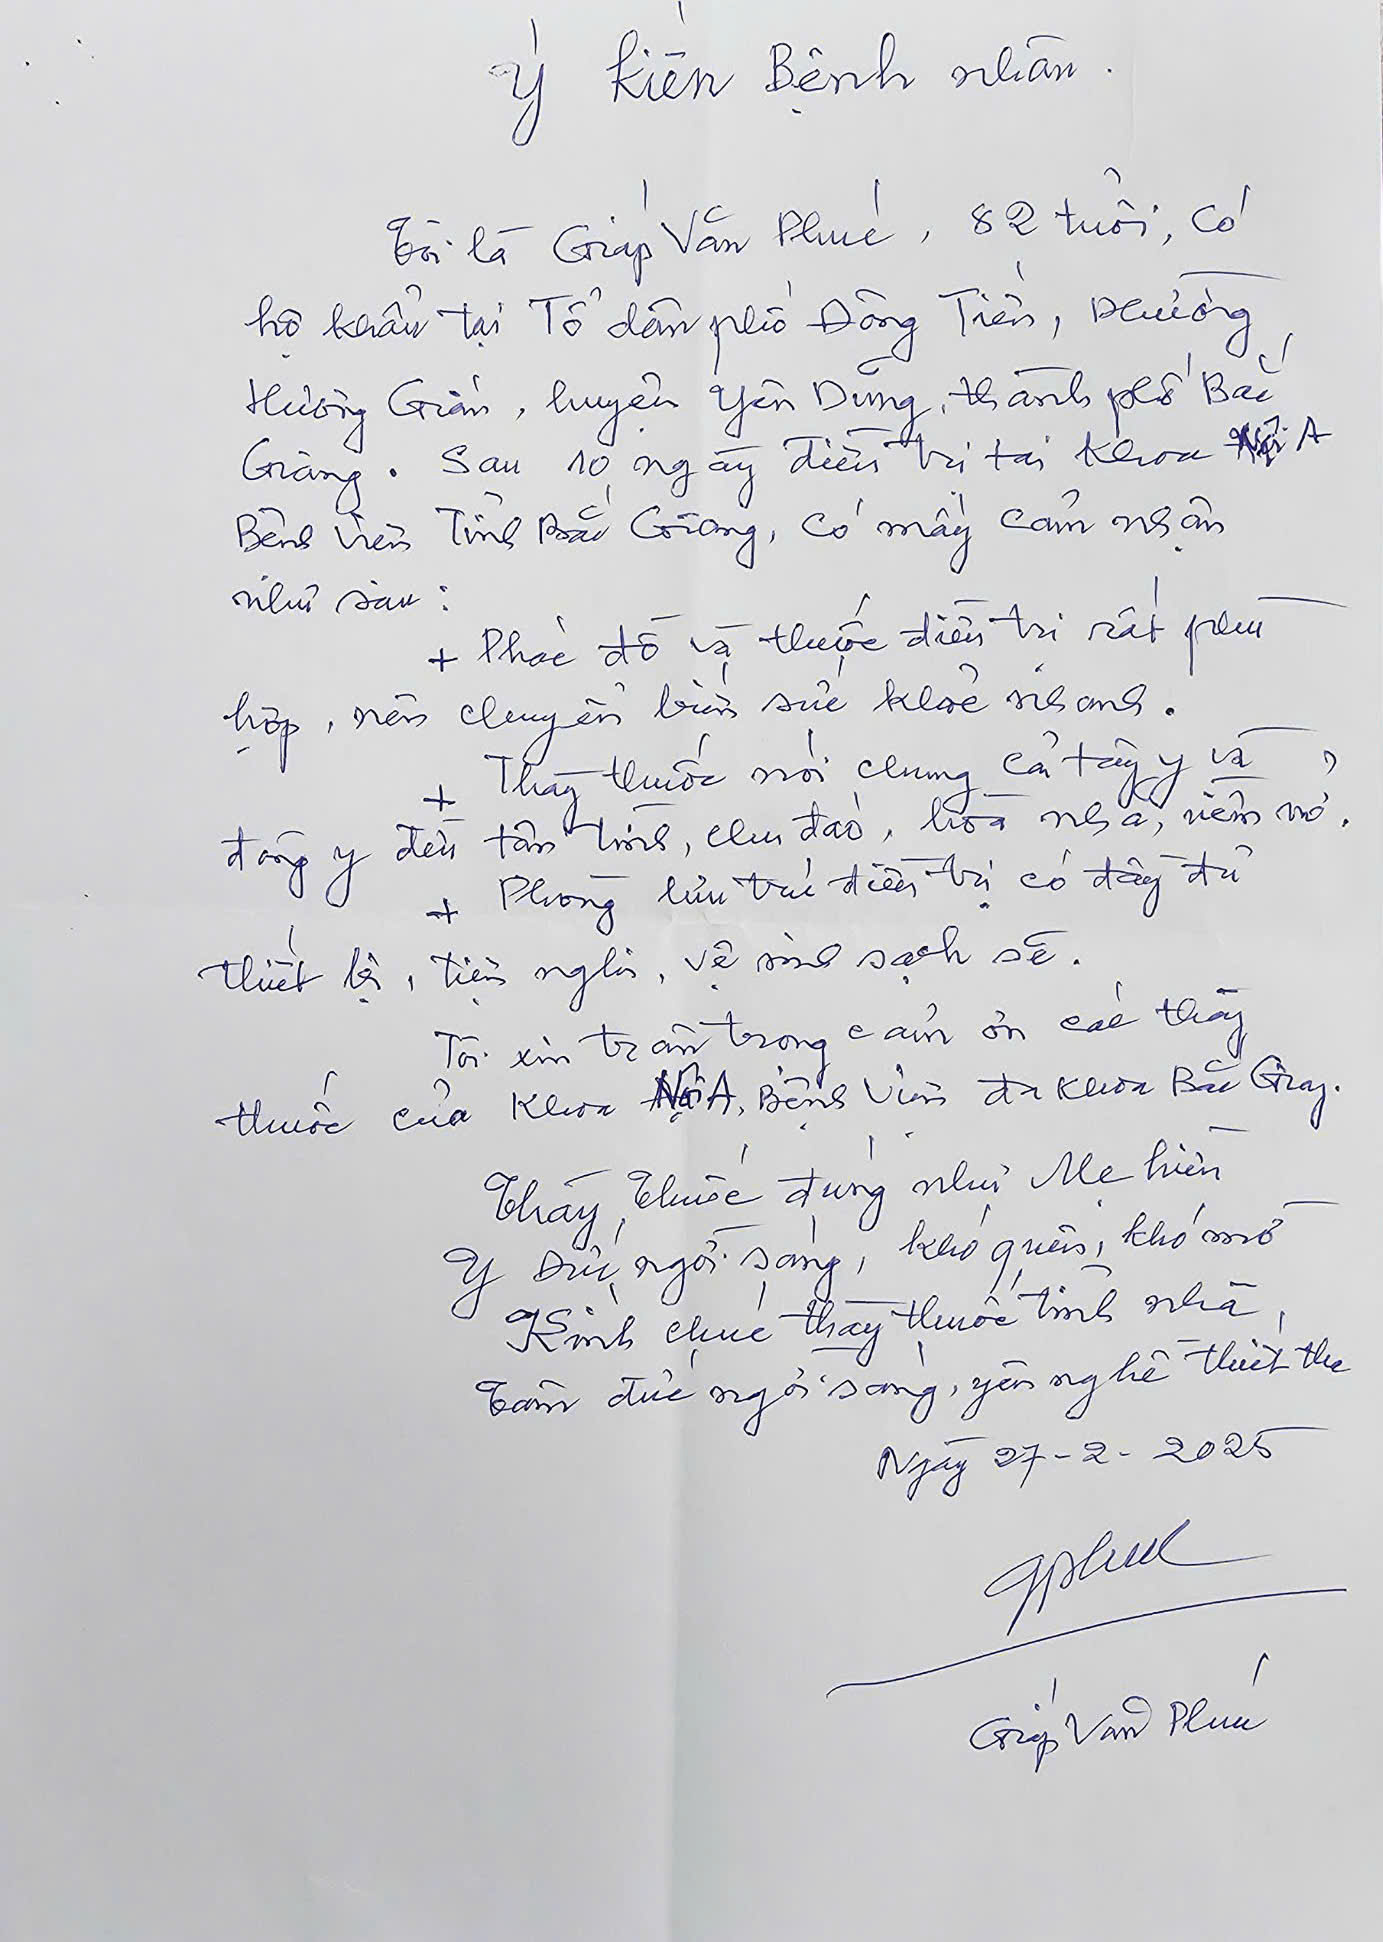 Ý kiến Bệnh nhân.
Tôi là Giáp Văn Phúc, 82 tuổi, có
hộ khẩu tại Tổ dân phố Đông Tiến, Phường
Hương Gián, huyện Yên Dũng, thành phố Bắc
Giang. Sau 10 ngày điều trị tại khoa Nội A
Bệnh viện Tỉnh Bắc Giang, có mấy cảm nhận
như sau:
+ Phác đồ và thuốc điều trị rất phù
hợp, nên chuyển biến sức khoẻ nhanh.
+ Thầy thuốc nói chung cả tây y và
đông y đều tận tình, chu đáo, hoà nhã, niềm nở.
+ Phòng lưu trú điều trị có đầy đủ
thiết bị, tiện nghi, vệ sinh sạch sẽ.
Tôi xin trân trọng cảm ơn các thầy
thuốc của khoa Nội A, Bệnh viện đa khoa Bắc Giang.
Thầy thuốc đúng như Mẹ hiền
Y Đức ngời sáng, khó quên, khó mờ
Kính chúc thầy thuốc tỉnh nhà,
Tâm đức ngời sáng, yên nghề thiết tha
Ngày 27-2-2025
GPhuc
Giáp Văn Phúc